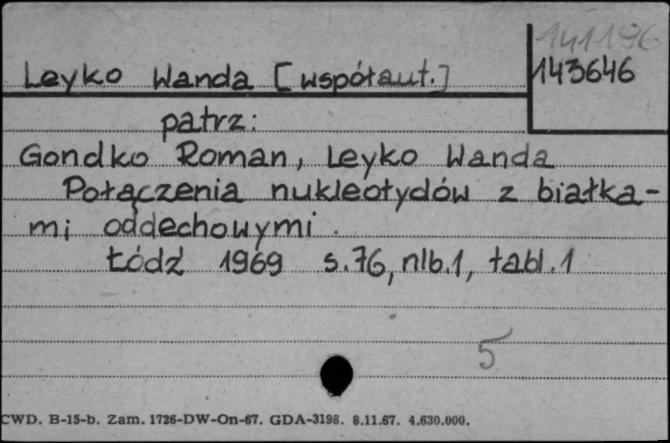 141196
Leyko Wanda [współaut.]
143646
patrz:
Gondko Roman, Leyko Wanda
Połączenia nukleotydów z białka-
mi oddechowymi.
Łódź 1969 s.76, nlb.1, tabl.1
5
CWD. B-15-b. Zam. 1726-DW-On-67. GDA-3198. 8.11.67. 4.630.000.